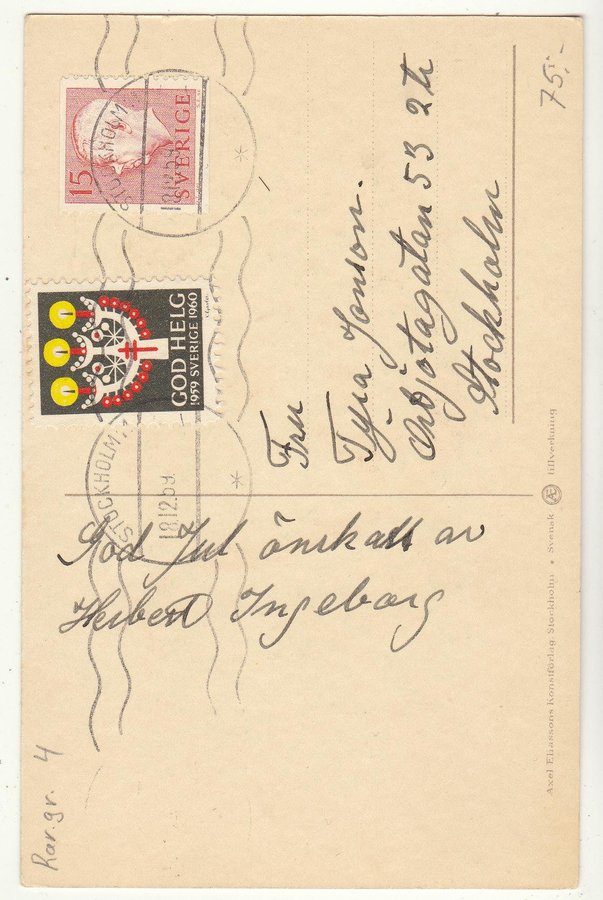 75:-
15
SVERIGE
STOCKHOLM
GOD HELG
1959 SVERIGE 1960
STOCKHOLM
18.12.59
Fru
Tyra Jonson.
53 2tr
Stockholm
God Jul önskas av
Herbert Ingeborg
Axel Eliassons Konstförlag, Stockholm • Svensk Æ tillverkning
Rar.gr. 4